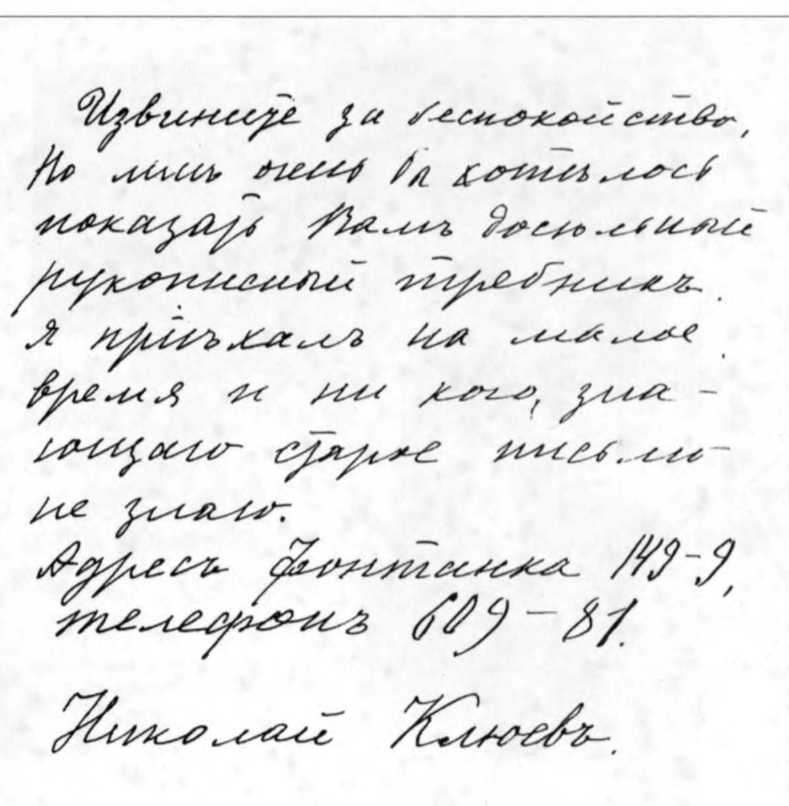 Извините за беспокойство,
Но мнѣ очень бы хотѣлось
показать Вамъ досюльный
рукописный требникъ.
Я пріѣхалъ на малое
время и ни кого, зна-
ющаго старое письмо
не знаю.
Адресъ Фонтанка 149-9,
телефонъ 609-81.
Николай Клюевъ.